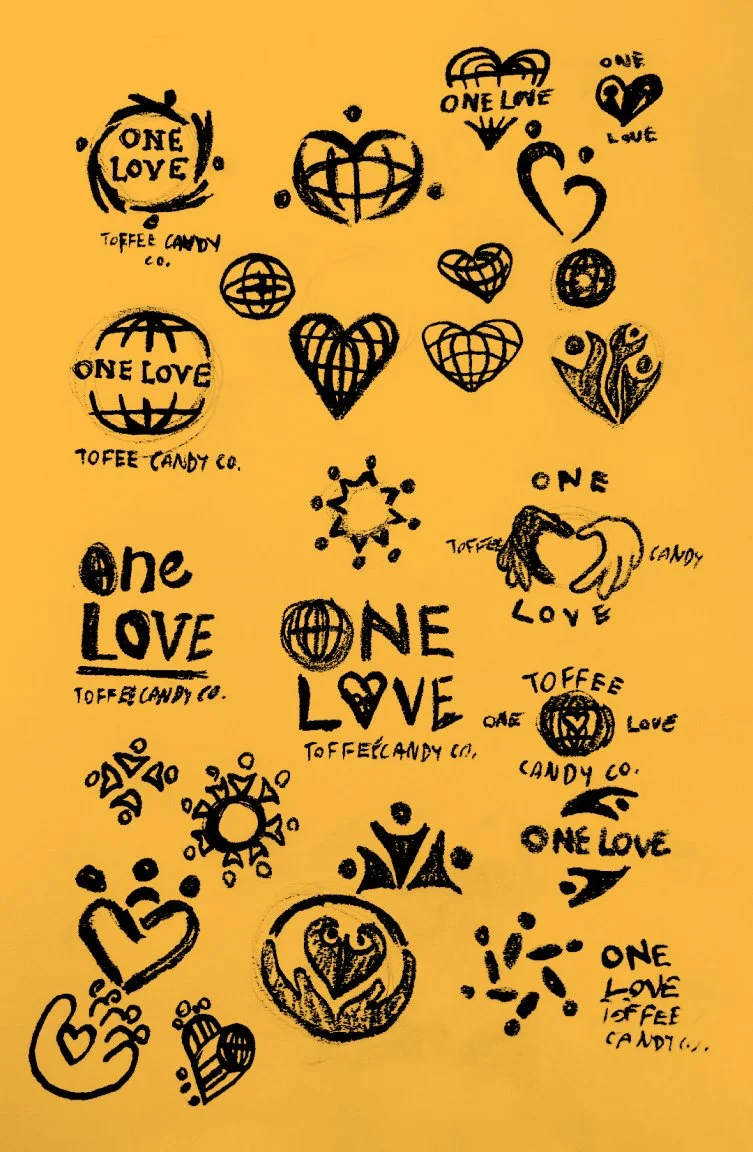 ONE LOVE
ONE
LOVE
ONE
LOVE
TOFFEE CANDY
CO.
ONE LOVE
TOFEE CANDY CO.
ONE
TOFFEE
CANDY
LOVE
One
LOVE
TOFFEE CANDY CO.
ONE
LOVE
TOFFEE CANDY CO.
TOFFEE
ONE
LOVE
CANDY CO.
ONE LOVE
ONE
LOVE
TOFFEE
CANDY CO.